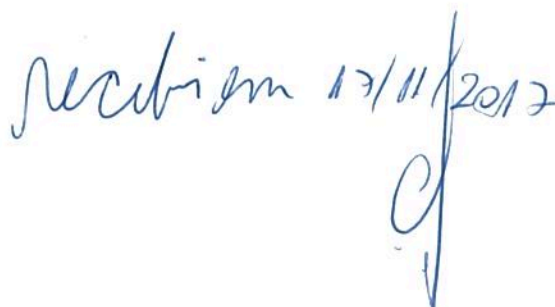 recibi em 17/11/2017